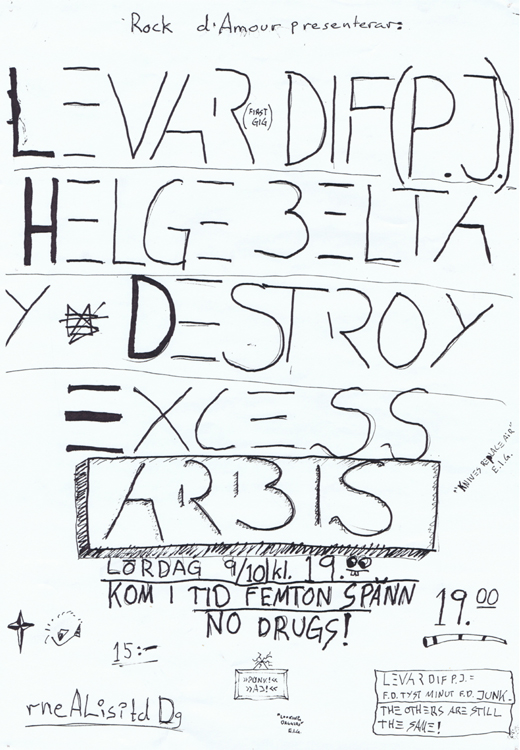 Rock d'Amour presenterar:
LEVAR (FIRST GIG) DIF (P.J.)
HELGE BELTA
Y DESTROY
EXCESS
ARBIS
"KNIVES REPLACE AIR"
E.I.G.
LÖRDAG 9/10 kl. 19.00
KOM I TID FEMTON SPÄNN
NO DRUGS!
19.00
15:-
»PONK!«
»AJ!«
LEVAR DIF P.J. =
F.D. TYST MINUT F.D. JUNK.
THE OTHERS ARE STILL
THE SAME!
rneALisitd Dg
E.I.G.